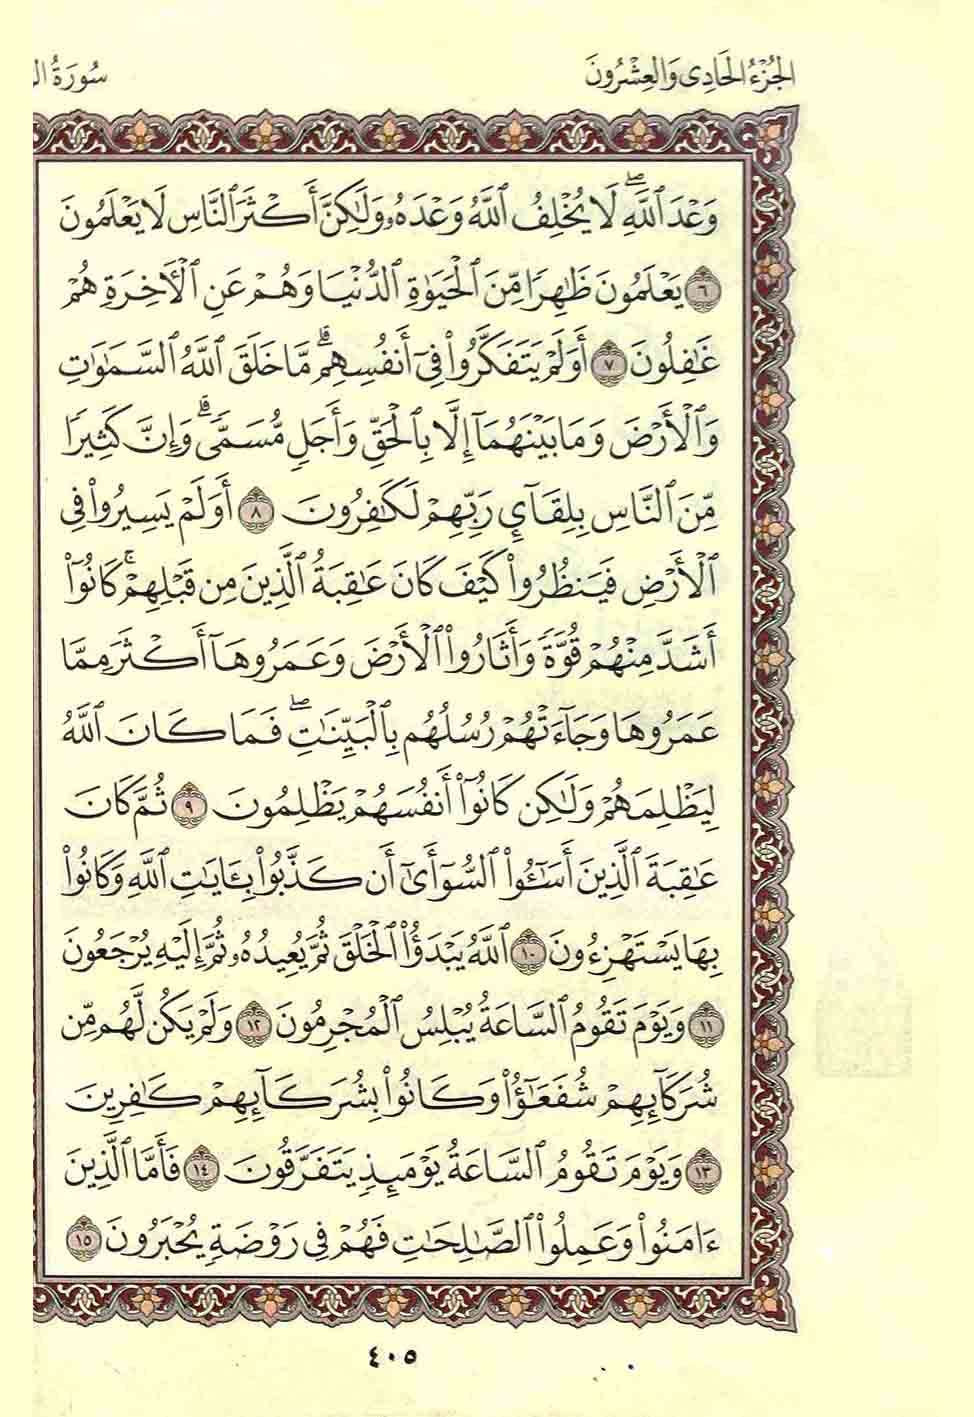 الجُزْءُ الحَادِى وَالعِشْرُونَ
سُورَةُ
وَعْدَ ٱللَّهِۖ لَا يُخْلِفُ ٱللَّهُ وَعْدَهُۥ وَلَٰكِنَّ أَكْثَرَ ٱلنَّاسِ لَا يَعْلَمُونَ
٦ يَعْلَمُونَ ظَٰهِرًا مِّنَ ٱلْحَيَوٰةِ ٱلدُّنْيَا وَهُمْ عَنِ ٱلْءَاخِرَةِ هُمْ
غَٰفِلُونَ ٧ أَوَلَمْ يَتَفَكَّرُوا۟ فِىٓ أَنفُسِهِمۗ مَّا خَلَقَ ٱللَّهُ ٱلسَّمَٰوَٰتِ
وَٱلْأَرْضَ وَمَا بَيْنَهُمَآ إِلَّا بِٱلْحَقِّ وَأَجَلٍ مُّسَمًّىۗ وَإِنَّ كَثِيرًا
مِّنَ ٱلنَّاسِ بِلِقَآئِ رَبِّهِمْ لَكَٰفِرُونَ ٨ أَوَلَمْ يَسِيرُوا۟ فِى
ٱلْأَرْضِ فَيَنظُرُوا۟ كَيْفَ كَانَ عَٰقِبَةُ ٱلَّذِينَ مِن قَبْلِهِمْۚ كَانُوٓا۟
أَشَدَّ مِنْهُمْ قُوَّةً وَأَثَارُوا۟ ٱلْأَرْضَ وَعَمَرُوهَآ أَكْثَرَ مِمَّا
عَمَرُوهَا وَجَآءَتْهُمْ رُسُلُهُم بِٱلْبَيِّنَٰتِۖ فَمَا كَانَ ٱللَّهُ
لِيَظْلِمَهُمْ وَلَٰكِن كَانُوٓا۟ أَنفُسَهُمْ يَظْلِمُونَ ٩ ثُمَّ كَانَ
عَٰقِبَةَ ٱلَّذِينَ أَسَٰٓـُٔوا۟ ٱلسُّوٓأَىٰٓ أَن كَذَّبُوا۟ بِـَٔايَٰتِ ٱللَّهِ وَكَانُوا۟
بِهَا يَسْتَهْزِءُونَ ١٠ ٱللَّهُ يَبْدَؤُا۟ ٱلْخَلْقَ ثُمَّ يُعِيدُهُۥ ثُمَّ إِلَيْهِ يُرْجَعُونَ
١١ وَيَوْمَ تَقُومُ ٱلسَّاعَةُ يُبْلِسُ ٱلْمُجْرِمُونَ ١٢ وَلَمْ يَكُن لَّهُم مِّن
شُرَكَآئِهِمْ شُفَعَٰٓؤُا۟ وَكَانُوا۟ بِشُرَكَآئِهِمْ كَٰفِرِينَ
١٣ وَيَوْمَ تَقُومُ ٱلسَّاعَةُ يَوْمَئِذٍ يَتَفَرَّقُونَ ١٤ فَأَمَّا ٱلَّذِينَ
ءَامَنُوا۟ وَعَمِلُوا۟ ٱلصَّٰلِحَٰتِ فَهُمْ فِى رَوْضَةٍ يُحْبَرُونَ ١٥
٤٠٥